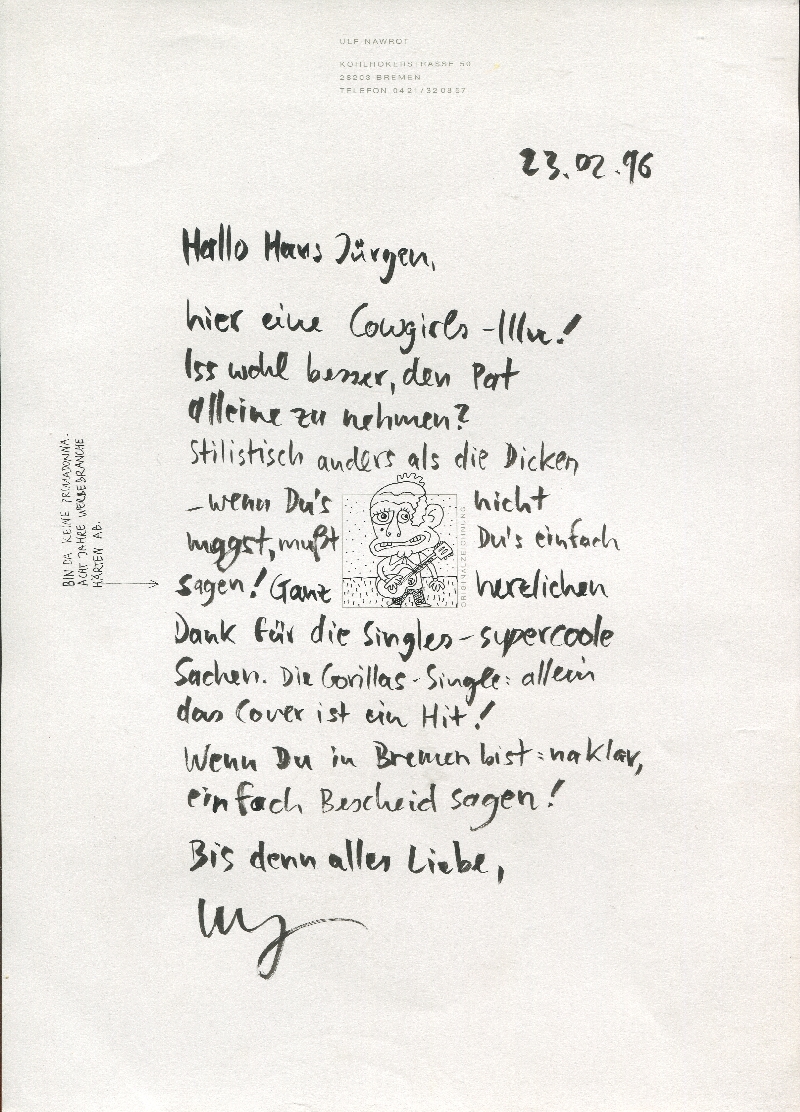 ULF NAWROT
KOHLHÖKERSTRASSE 50
28203 BREMEN
TELEFON 0421/320837
23.02.96
Hallo Hans Jürgen,
hier eine Cowgirls-Illu!
Iss wohl besser, den Pat
alleine zu nehmen?
Stilistisch anders als die Dicken
– wenn Du's nicht
maggst, mußt Du's einfach
sagen! Ganz herzlichen
Dank für die Singles – supercoole
Sachen. Die Gorillas-Single: allein
das Cover ist ein Hit!
Wenn Du in Bremen bist: na klar,
einfach Bescheid sagen!
Bis denn alles Liebe,
BIN DA KEINE PRIMADONNA.
ACHT JAHRE WERBEBRANCHE
HÄRTEN AB.
ORIGINALZEICHNUNG